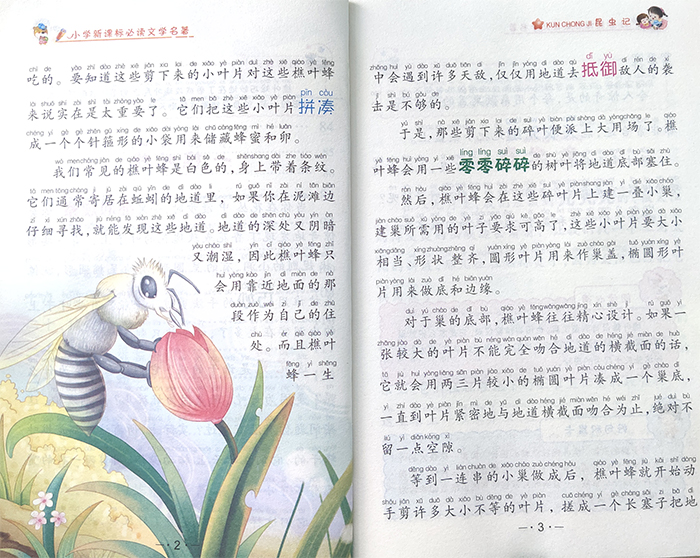 小学新课标必读文学名著
吃的。要知道这些剪下来的小叶片对这些樵叶蜂
pīn còu
来说实在是太重要了。它们把这些小叶片拼凑
成一个个针箍形的小袋用来储藏蜂蜜和卵。
我们常见的樵叶蜂是白色的,身上带着条纹。
它们通常寄居在蚯蚓的地道里,如果你在泥滩边
仔细寻找,就能发现这些地道。地道的深处又阴暗
又潮湿,因此樵叶蜂只
会用靠近地面的那
段作为自己的住
处。而且樵叶
蜂一生
2
KUN CHONG JI 昆虫记
dǐ yù
中会遇到许多天敌,仅仅用地道去抵御敌人的袭
击是不够的。
于是,那些剪下来的碎叶便派上大用场了。樵
líng líng suì suì
叶蜂会用一些零零碎碎的树叶将地道底部塞住。
然后,樵叶蜂会在这些碎叶片上建一叠小巢,
建巢所需用的叶子要求可高了,这些小叶片要大小
相当、形状整齐,圆形叶片用来作巢盖,椭圆形叶
片用来做底和边缘。
对于巢的底部,樵叶蜂往往精心设计。如果一
张较大的叶片不能完全吻合地道的横截面的话,
它就会用两三片较小的椭圆叶片凑成一个巢底,
一直到叶片紧密地与地道横截面吻合为止,绝对不
留一点空隙。
等到一连串的小巢做成后,樵叶蜂就开始动
手剪许多大小不等的叶片,搓成一个长塞子把地
3